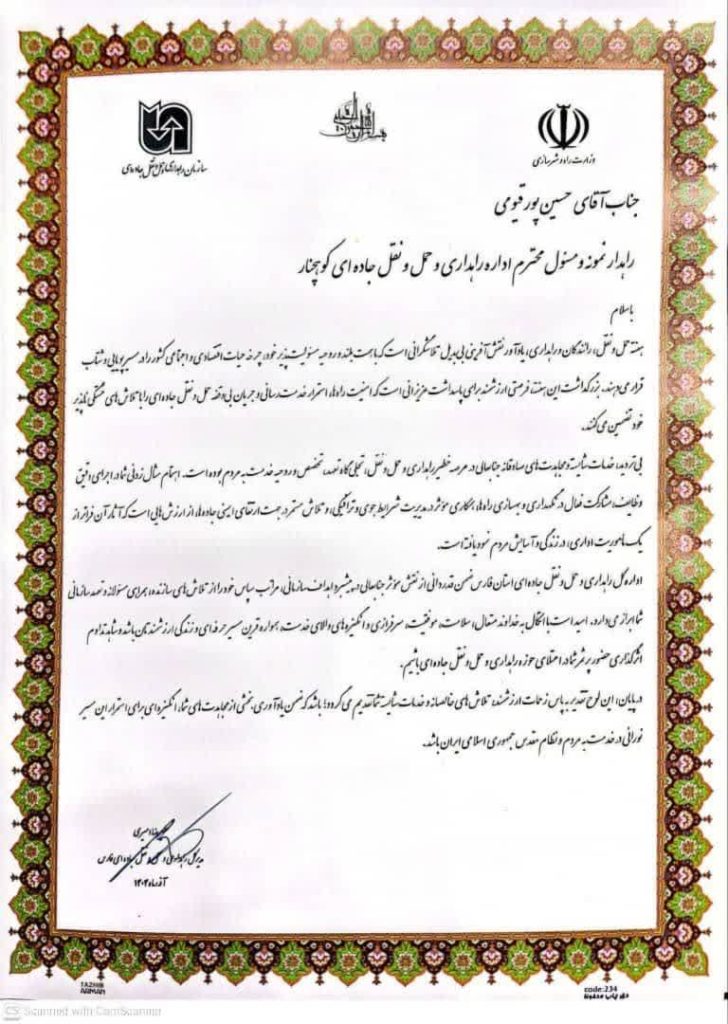 بسم الله الرحمن الرحیم
وزارت راه و شهرسازی
سازمان راهداری و حمل و نقل جاده‌ای
جناب آقای حسین پور قیومی
راهدار نمونه و مسئول محترم اداره راهداری و حمل و نقل جاده ای کوهچنار
با سلام
هفته حمل و نقل، رانندگان و راهداری، یادآور نقش آفرینی بی بدیل تلاشگرانی است که با همت بلند و روحیه مسئولیت پذیر خود، چرخه حیات اقتصادی و اجتماعی کشور را در مسیر پویایی و شتاب
قرار می دهند. بزرگداشت این هفته، فرصتی ارزشمند برای پاسداشت عزیزانی است که امنیت راه ها، استمرار خدمت رسانی و جریان بی وقفه حمل و نقل جاده ای را با تلاش های خستگی ناپذیر
خود تضمین می کنند.
بی تردید، خدمات شایسته و مجاهدت های صادقانه جنابعالی در عرصه خطیر راهداری و حمل و نقل، تجلی گاه تعهد، تخصص و روحیه خدمت به مردم بوده است. اهتمام مثال زدنی شما در اجرای دقیق
وظایف، مشارکت فعال در نگهداری و بهسازی راه ها، همکاری مؤثر در مدیریت شرایط جوی و ترافیکی، و تلاش مستمر در جهت ارتقای ایمنی جاده ها، از ارزش هایی است که آثار آن فراتر از
یک مأموریت اداری، در زندگی و آسایش مردم نمود یافته است.
اداره کل راهداری و حمل و نقل جاده ای استان فارس ضمن قدردانی از نقش مؤثر جنابعالی در پیشبرد اهداف سازمانی، مراتب سپاس خود را از تلاش های سازنده، همراهی مسئولانه و تعهد سازمانی
شما ابراز می دارد. امید است با اتکال به خداوند متعال، سلامت، موفقیت، سرفرازی و انگیزه های والای خدمت، همواره قرین مسیر حرفه ای و زندگی ارزشمندتان باشد و شاهد تداوم
اثرگذاری حضور پرثمر شما در اعتلای حوزه راهداری و حمل و نقل جاده ای باشیم.
در پایان، این لوح تقدیر به پاس زحمات ارزشمند، تلاش های خالصانه و خدمات شایسته شما تقدیم می گردد؛ باشد که ضمن یادآوری بخشی از مجاهدت های شما، انگیزه ای برای استمرار این مسیر
نورانی در خدمت به مردم و نظام مقدس جمهوری اسلامی ایران باشد.
مدیرکل راهداری و حمل و نقل جاده ای فارس
آذرماه ۱۴۰۴
TAZHIB
code:234
حق چاپ محفوظ
CS Scanned with CamScanner